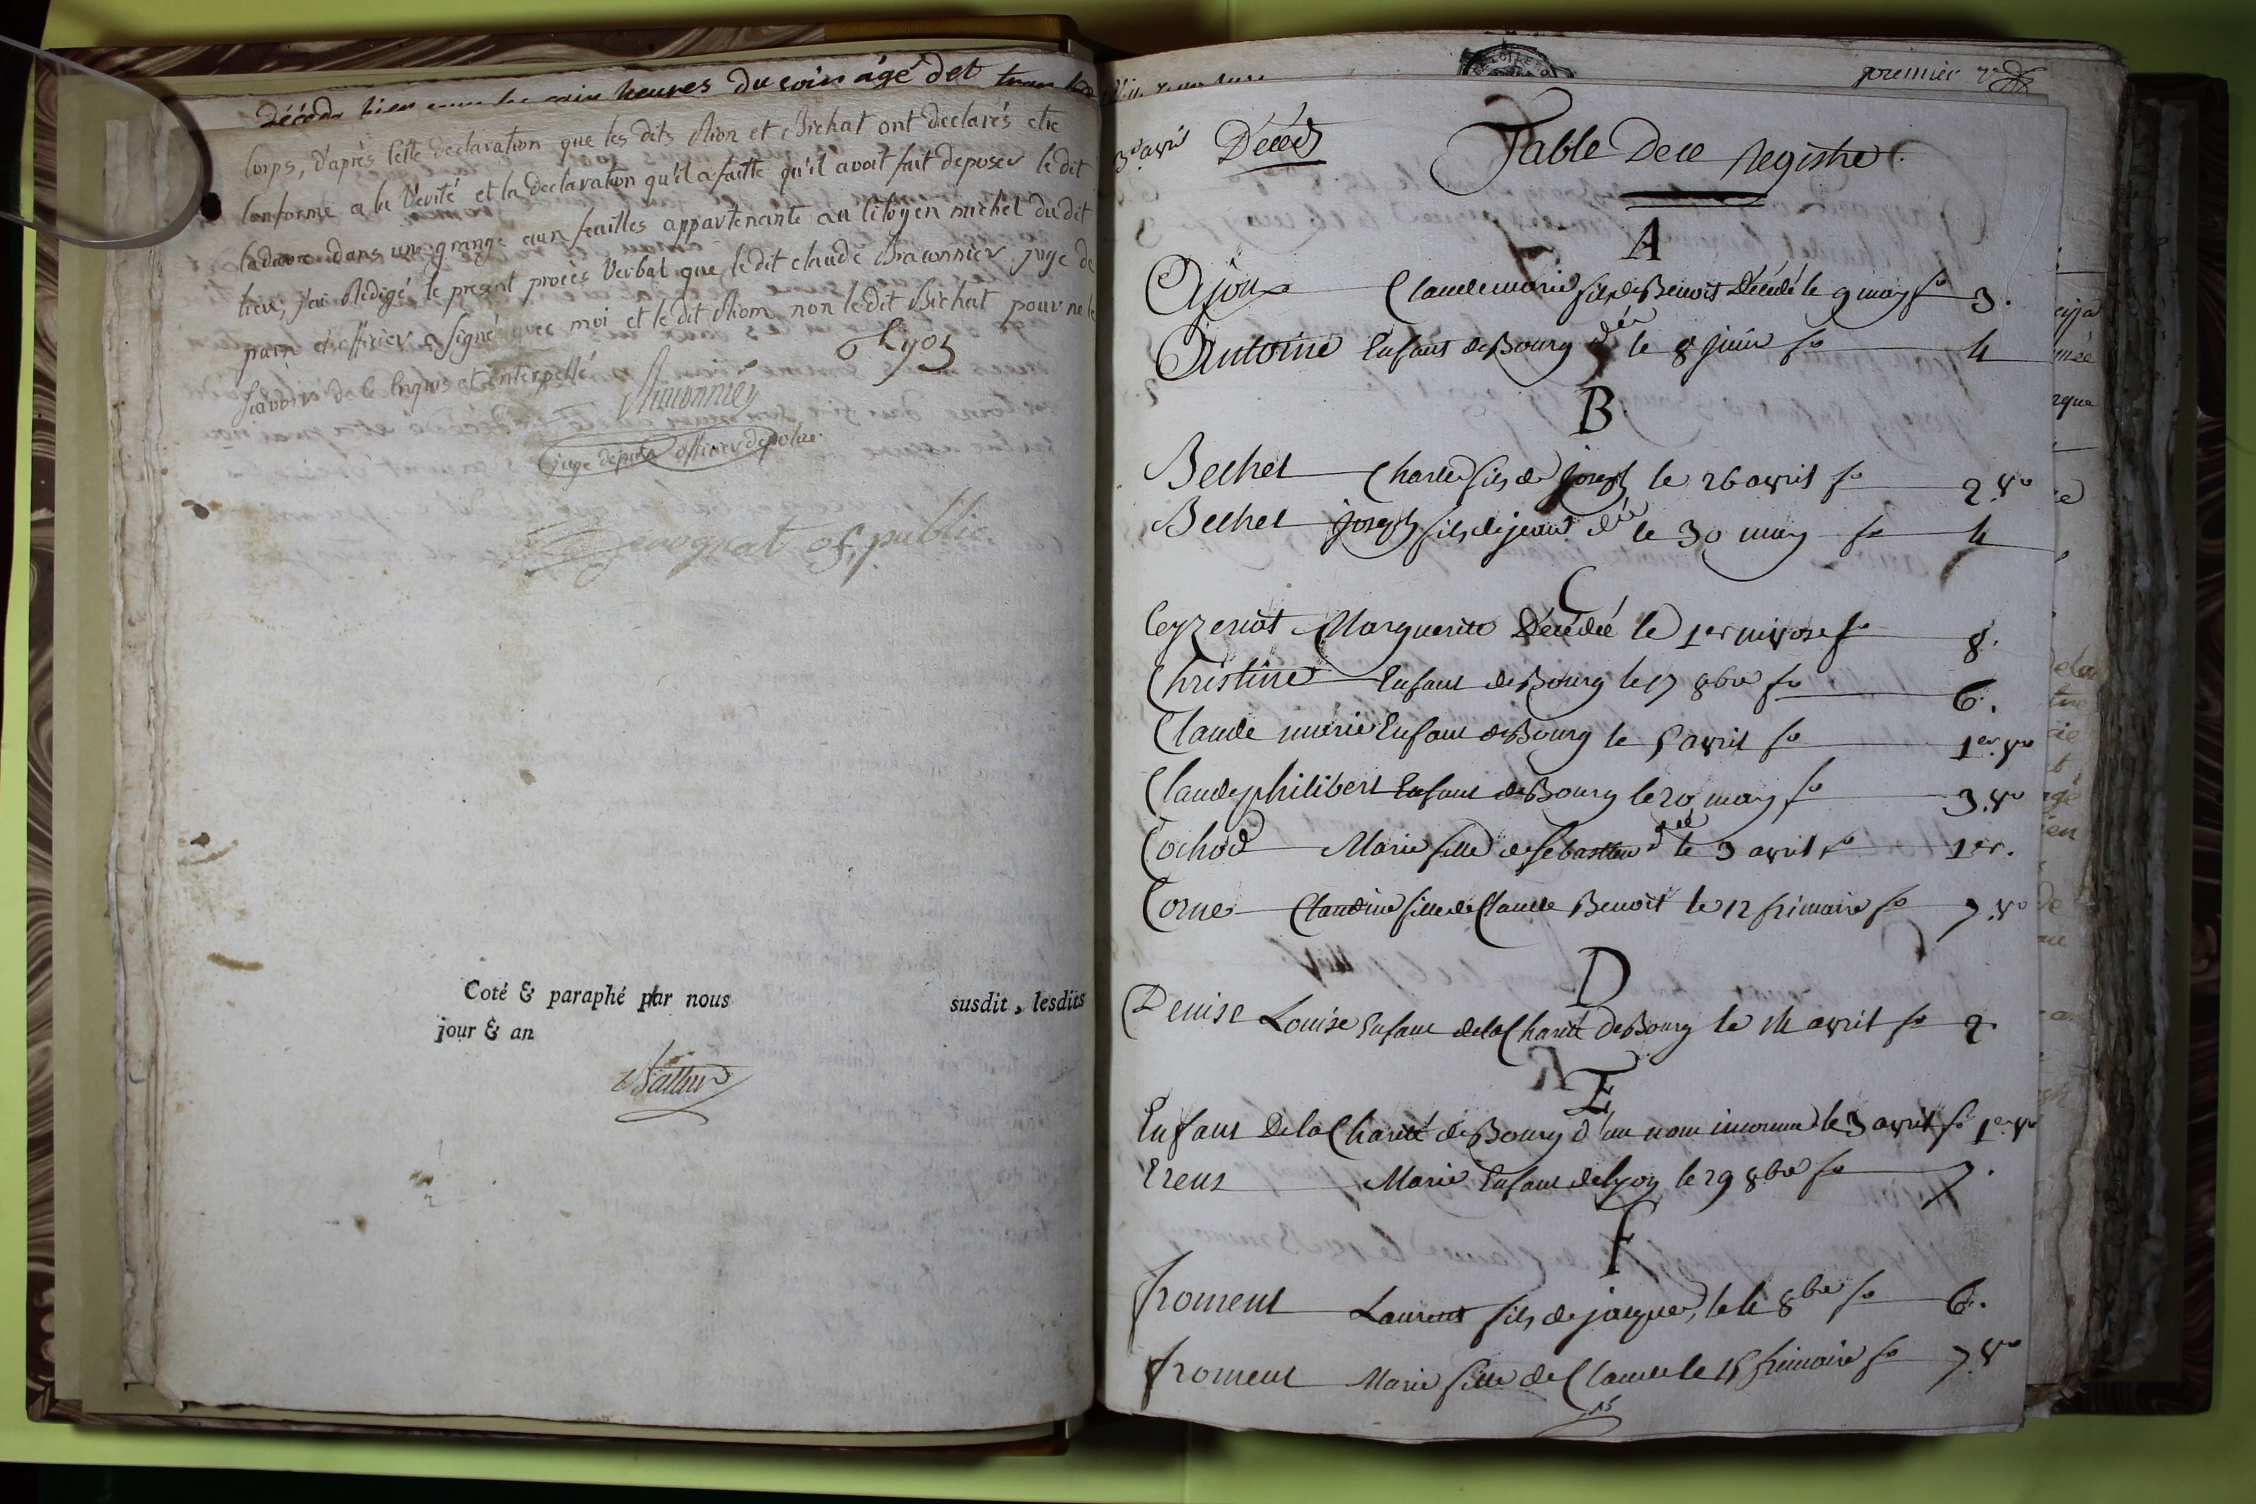 décédé hier heures du soir âgé de
Corps, d'après cette declaration que les dits Rion et Bichat ont declarés etre
Conforme a la Vérité et la declaration qu'il a faitte qu'il avoit fait deposer le dit
Cadavre dans une grange aux feuilles appartenante au Citoyen michel du dit
lieu, j'ai Rédigé le present procès Verbal que le dit claude Braconnier juge de
paix et officier a signé avec moi et le dit Riom non le dit Bichat pour ne le
sçavoir de ce Enquis et interpellé
Braconnier
juge de paix officier de police
off. public
Coté & paraphé par nous susdit, lesdits
jour & an
premier
3 avril
Décéd
Table De ce Registre
A
Claude marie fils de Benoit Décédé le 9 may fo 3.
Antoine Enfant de Bourg dée le 8 juin fo 4
B
Bechet Charle fils de joseph le 26 avril fo 2.vo
Bechet joseph fils de jean dée le 30 may fo 4
C
Ceyzeriat Marguerite Décédée le 1er nivose fo 8.
Christine Enfant de Bourg le 17 8bre fo 6.
Claude marie Enfant de Bourg le 5 avril fo 1er.vo
Claude philibert Enfant de Bourg le 20 may fo 3.vo
Cochod Marie fille de Sebastien dée le 3 avril fo 1er.
Corne Claudine fille de Claude Benoit le 12 frimaire fo 7.vo
D
Denise Louise Enfant de la Charité de Bourg le 14 avril fo 2.
E
Enfant De la Charité de Bourg d'un nom inconnu le 3 avril fo 1er vo
Ereus Marie Enfant de Lyon le 29 8bre fo 7.
F
froment Laurent fils de jacques, le 4 8bre fo 6.
froment Marie fille de Claude le 15 frimaire fo 7.vo